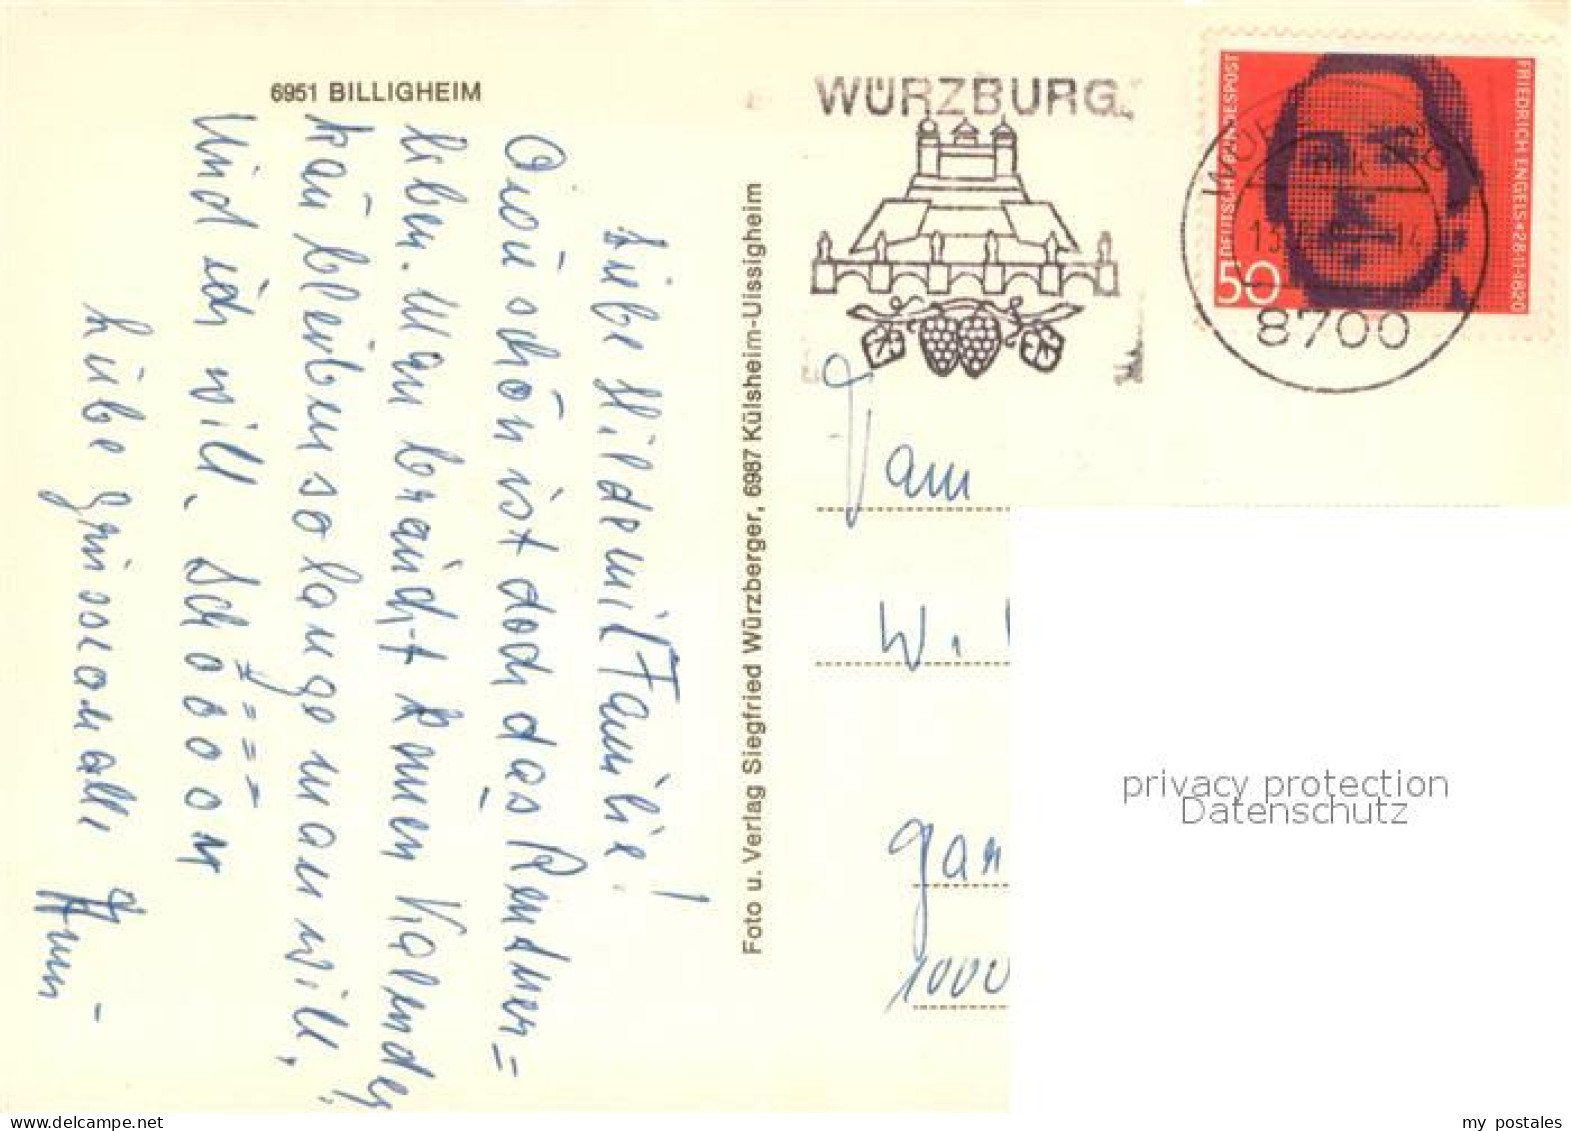 6951 BILLIGHEIM
Liebe Hilde mit Familie!
O wie schön ist doch das Rentner=
leben. Man braucht keinen Kalender,
kan bleiben so lange man will,
Und ich will. Schööön
Liebe Grüsse an alle
Foto u. Verlag Siegfried Würzberger, 6987 Külsheim-Uissigheim
WÜRZBURG
DEUTSCHE BUNDESPOST
50
FRIEDRICH ENGELS*28·11·1820
8700
Fam
W.
1000
privacy protection
Datenschutz
www.delcampe.net
my_postales